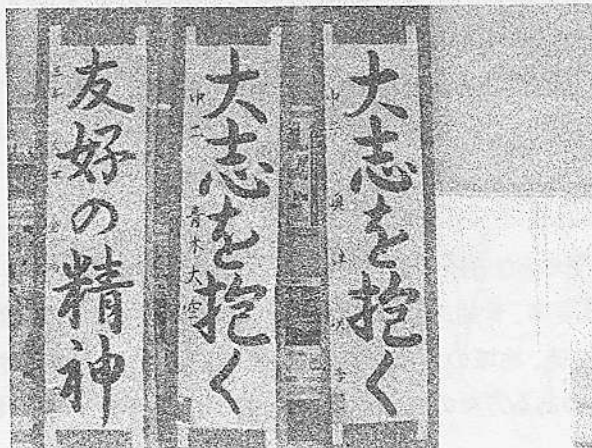 大志を抱く
大志を抱く
中二 青木大空
友好の精神